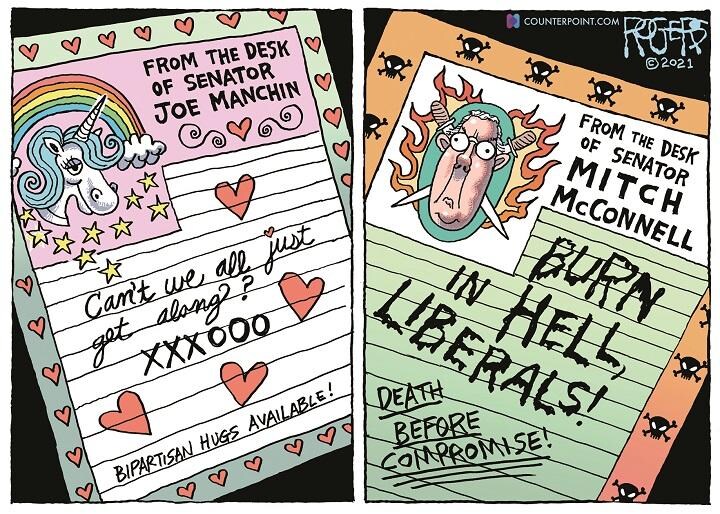 FROM THE DESK
OF SENATOR
JOE MANCHIN
Can't we all just
get along?
XXXOOO
BIPARTISAN HUGS AVAILABLE!
COUNTERPOINT.COM
ROGERS
©2021
FROM THE DESK
OF SENATOR
MITCH
McCONNELL
BURN
IN HELL,
LIBERALS!
DEATH
BEFORE
COMPROMISE!